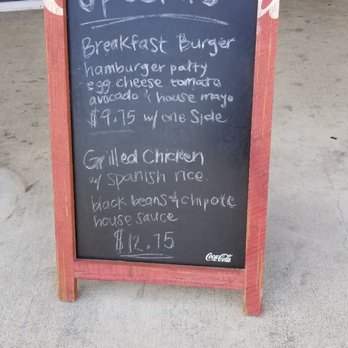 Breakfast Burger
hamburger patty
egg cheese tomato
avocado & house mayo
$9.75 w/ one side
Grilled Chicken
w/ spanish rice
black beans & chipotle
house sauce
$12.75
Coca-Cola